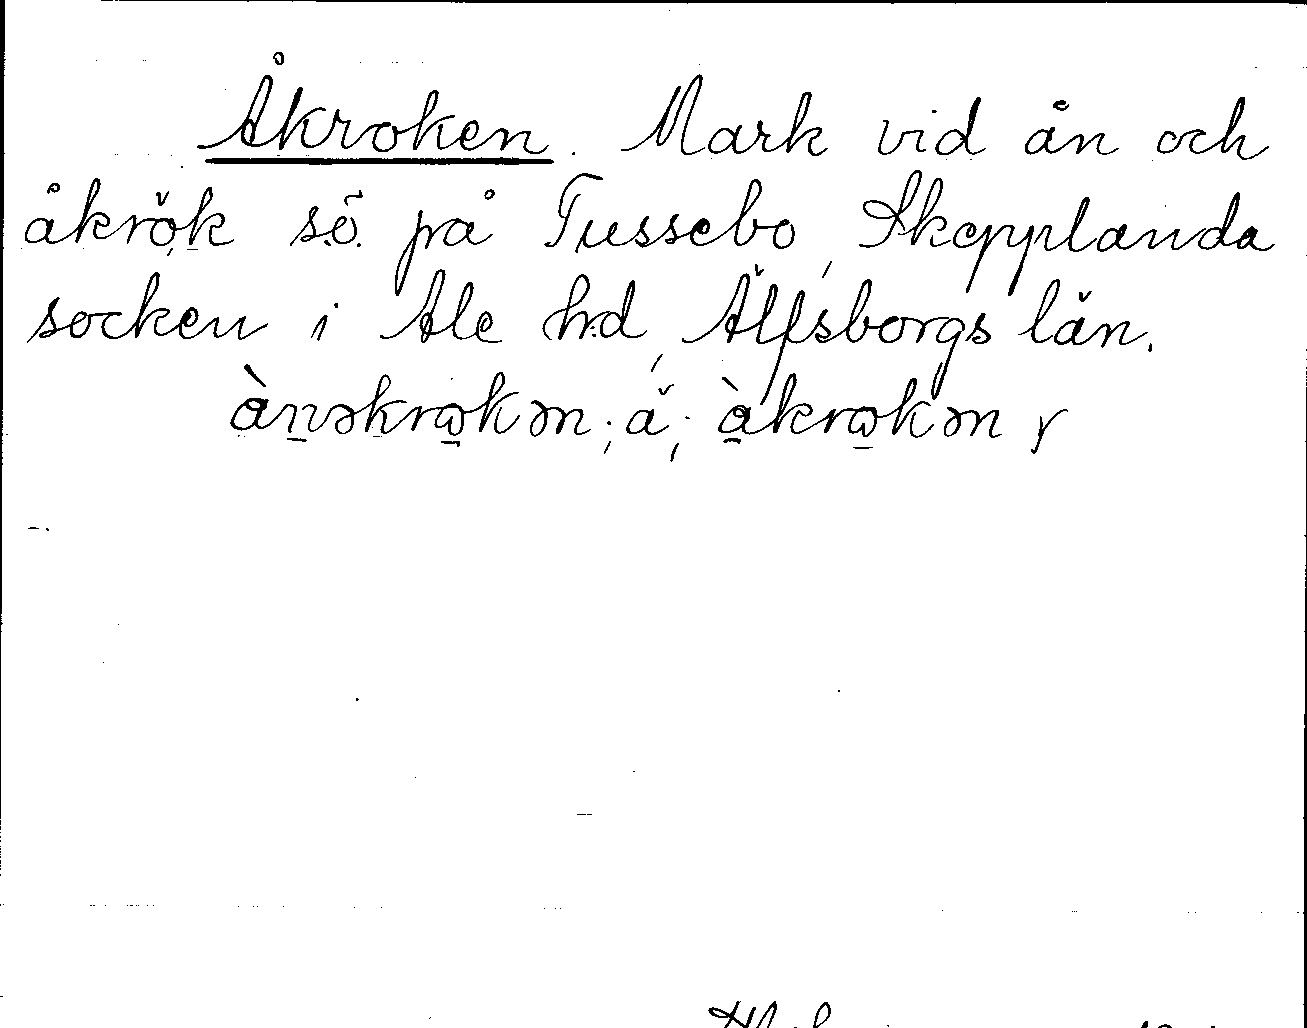 Åkroken. Mark vid ån och
åkrök s.ö. på Tussebo, Skepplanda
socken i Ale hd, Älfsborgs län.
ànəkrokən; å; àkrokən